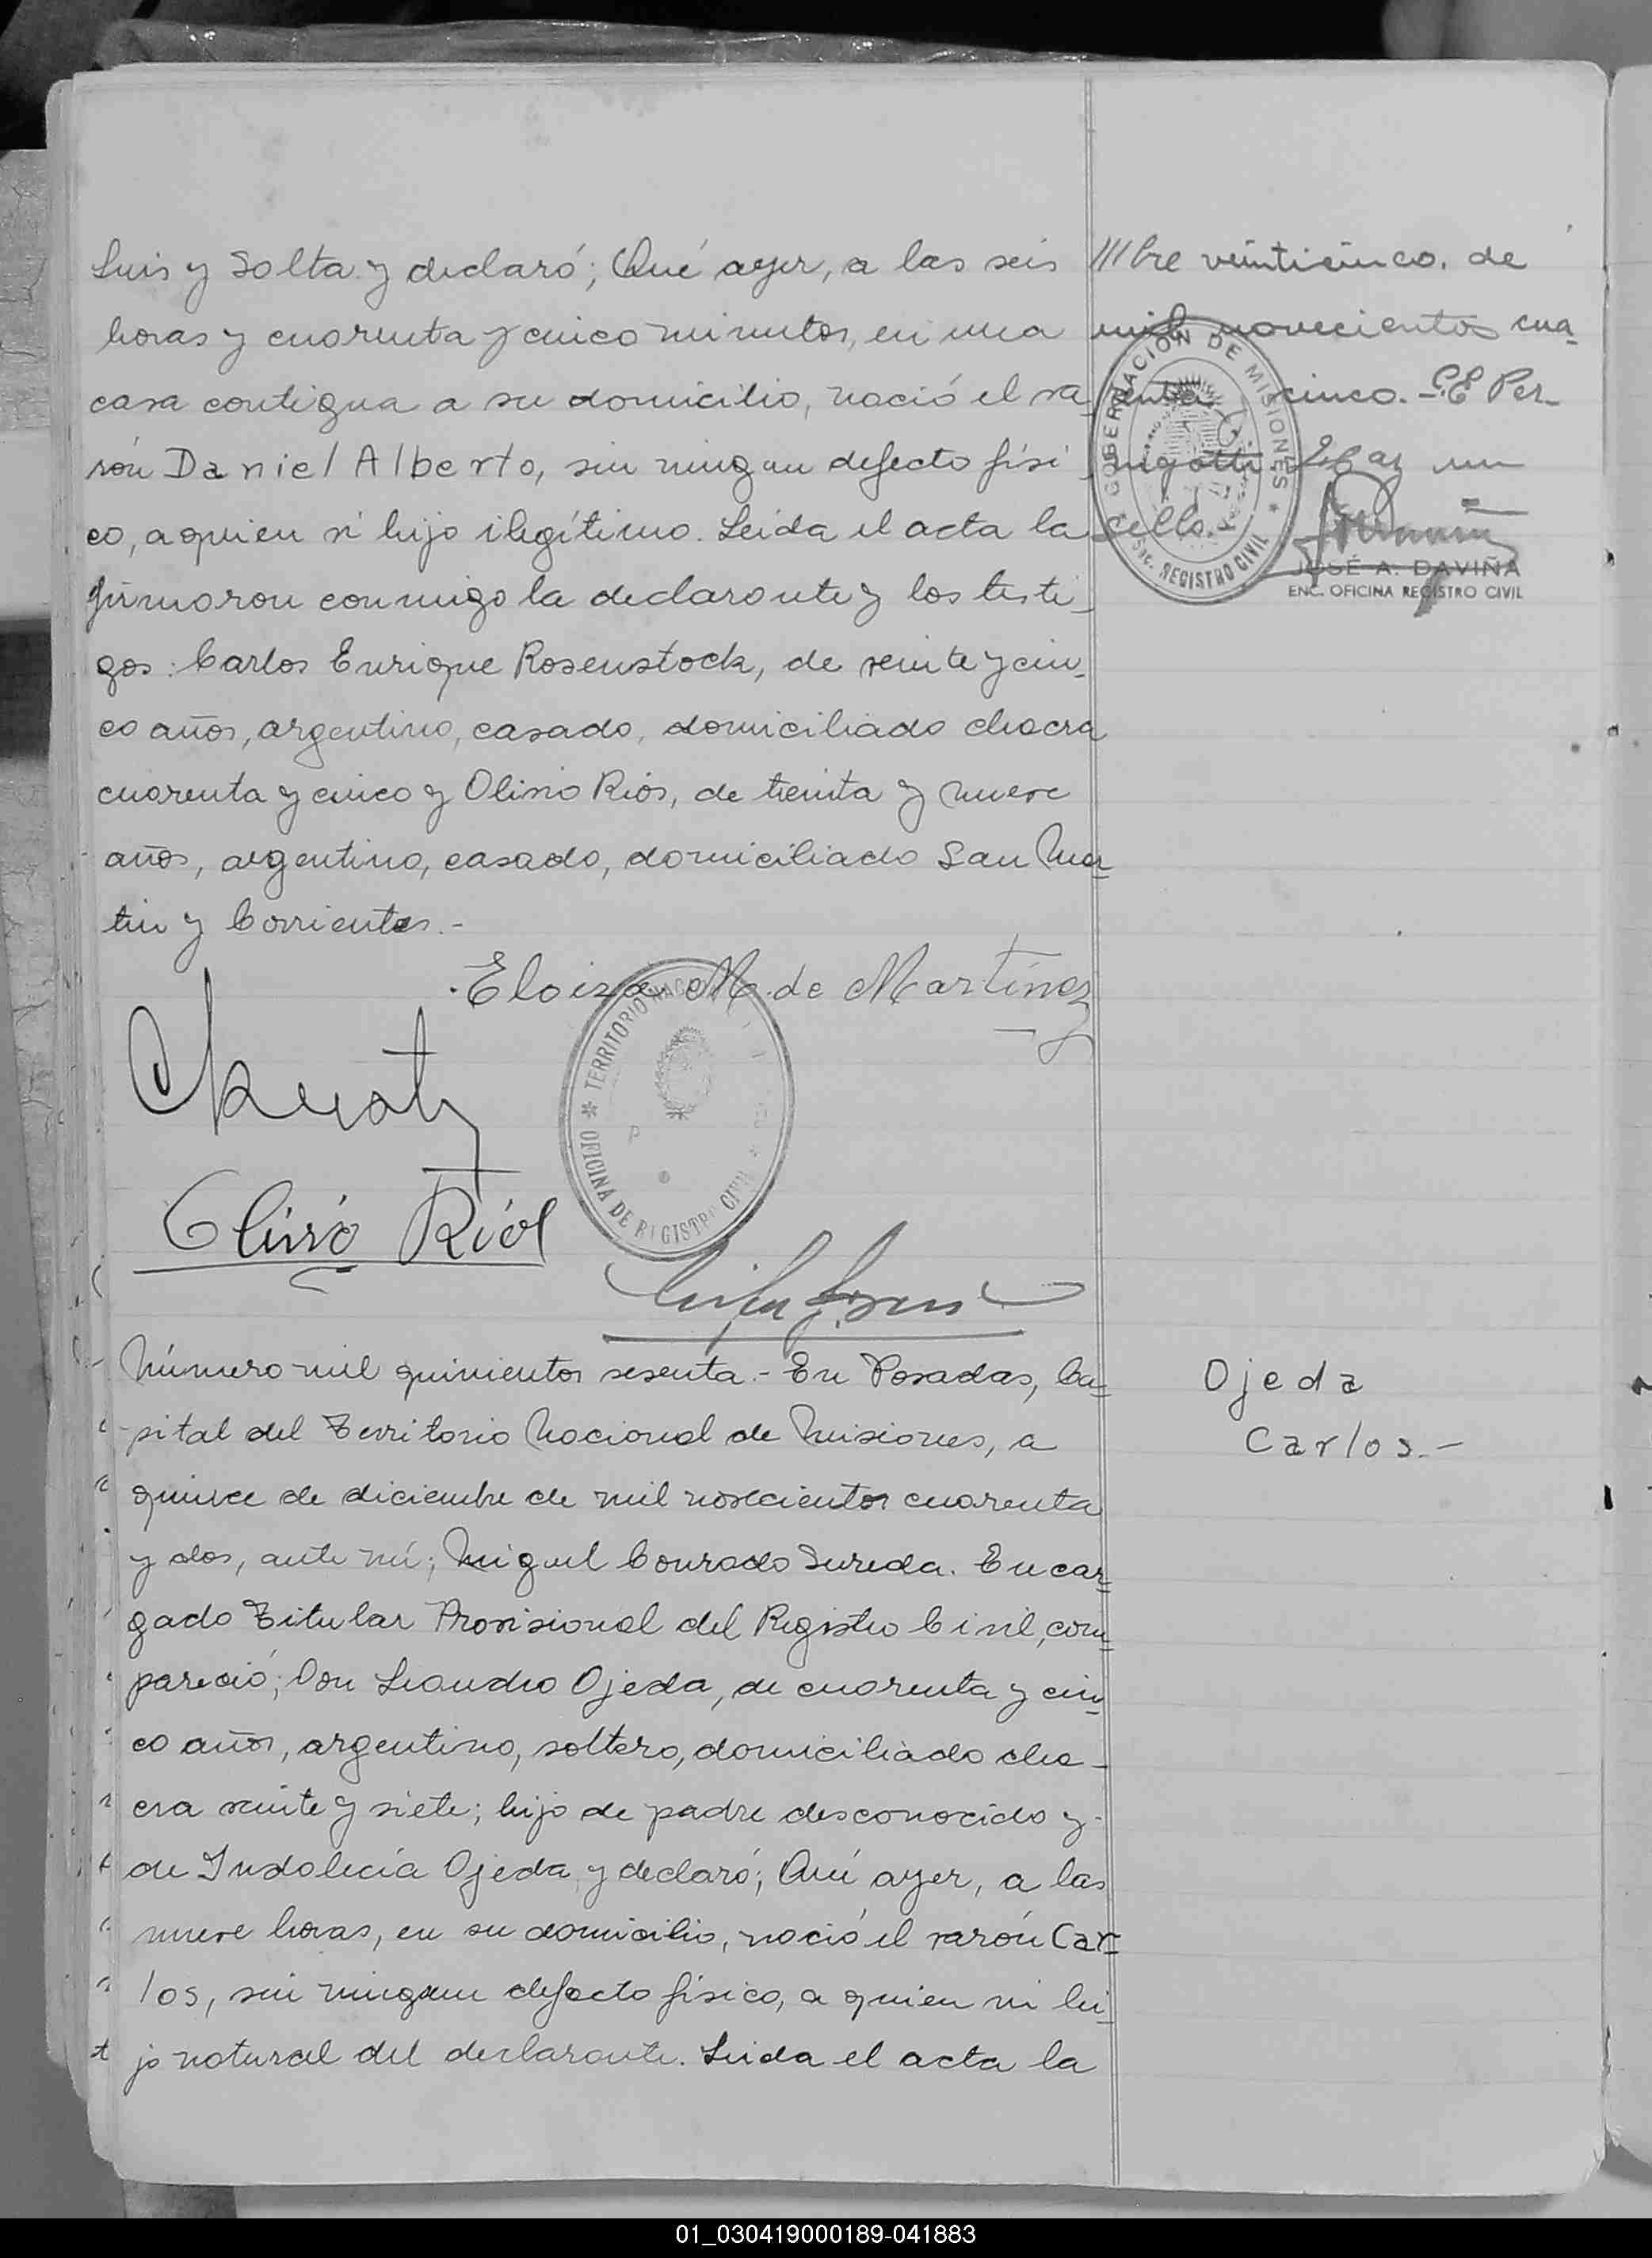 Luis y Solta y declaró; Qué ayer, a las seis
horas y cuarenta y cinco minutos, en una
casa contigua a su domicilio, nació el va
rón Daniel Alberto, sin ningun defecto físi
co, a quien vi hijo ilegítimo. Leída el acta la
firmaron conmigo la declarante y los testi-
gos: Carlos Enrique Rosenstock, de veinte y cin-
co años, argentino, casado, domiciliado chacra
cuarenta y cinco y Olivio Ríos, de treinta y nueve
años, argentino, casado, domiciliado San Mar-
tin y Corrientes.-
///bre veinticinco. de
mil novecientos cua-
renta cinco.- S.E Per-
un
sello.
GOBERNACION DE MISIONES
Sec. REGISTRO CIVIL
JOSÉ A. DAVIÑA
ENC. OFICINA REGISTRO CIVIL
Eloisa M. de Martínez
TERRITORIO NACIO
OFICINA DE REGISTRO CIVIL
Olivio Ríos
Número mil quinientos sesenta.- En Posadas, Ca-
pital del Territorio Nacional de Misiones, a
quince de diciembre de mil novecientos cuarenta
y dos, ante mí; Miguel Conrado Sureda. Encar-
gado Titular Provisional del Registro Civil, com-
pareció; Don Leandro Ojeda, de cuarenta y cin-
co años, argentino, soltero, domiciliado cha-
cra veinte y siete; hijo de padre desconocido y
de Indolecia Ojeda y declaró; Qué ayer, a las
nueve horas, en su domicilio, nació el varón Car-
los, sin ningun defecto físico, a quien vi hi-
jo natural del declarante. Leída el acta la
Ojeda
Carlos.-
01_030419000189-041883